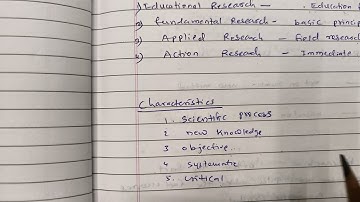 1) Educational Research — . Education
2) fundamental Research - basic princip
3) Applied Research - field research
4) Action Research - Immediate
Characteristics
1. Scientific process
2 new Knowledge
3 objective
4 systematic
5. critical